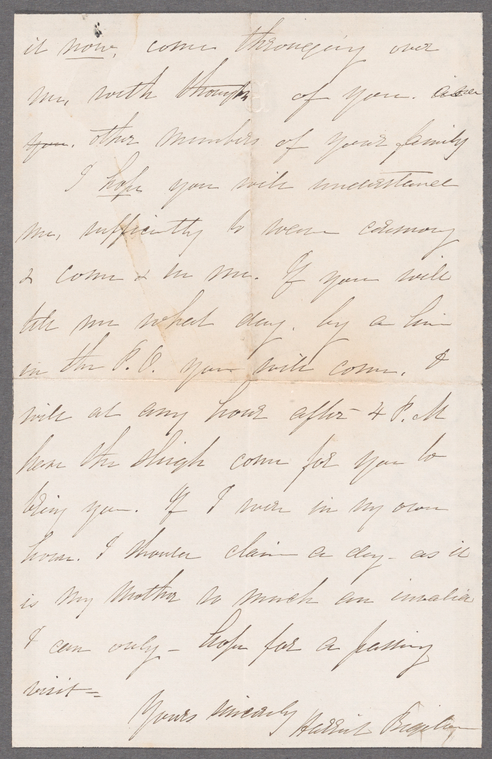 it now, come thronging over
me, with thoughts of you. and
you. other members of your family
I hope you will understand
me, sufficiently to waive ceremony
& come & see me. If you will
tell me what day, by a line
in the P.O. you will come, I
will at any hour after 4 P.M
have the sleigh come for you to
bring you. If I were in my own
home. I should claim a day - as it
is my Mother so much an invalid
I can only - hope for a passing
visit =
Yours sincerely Harriet